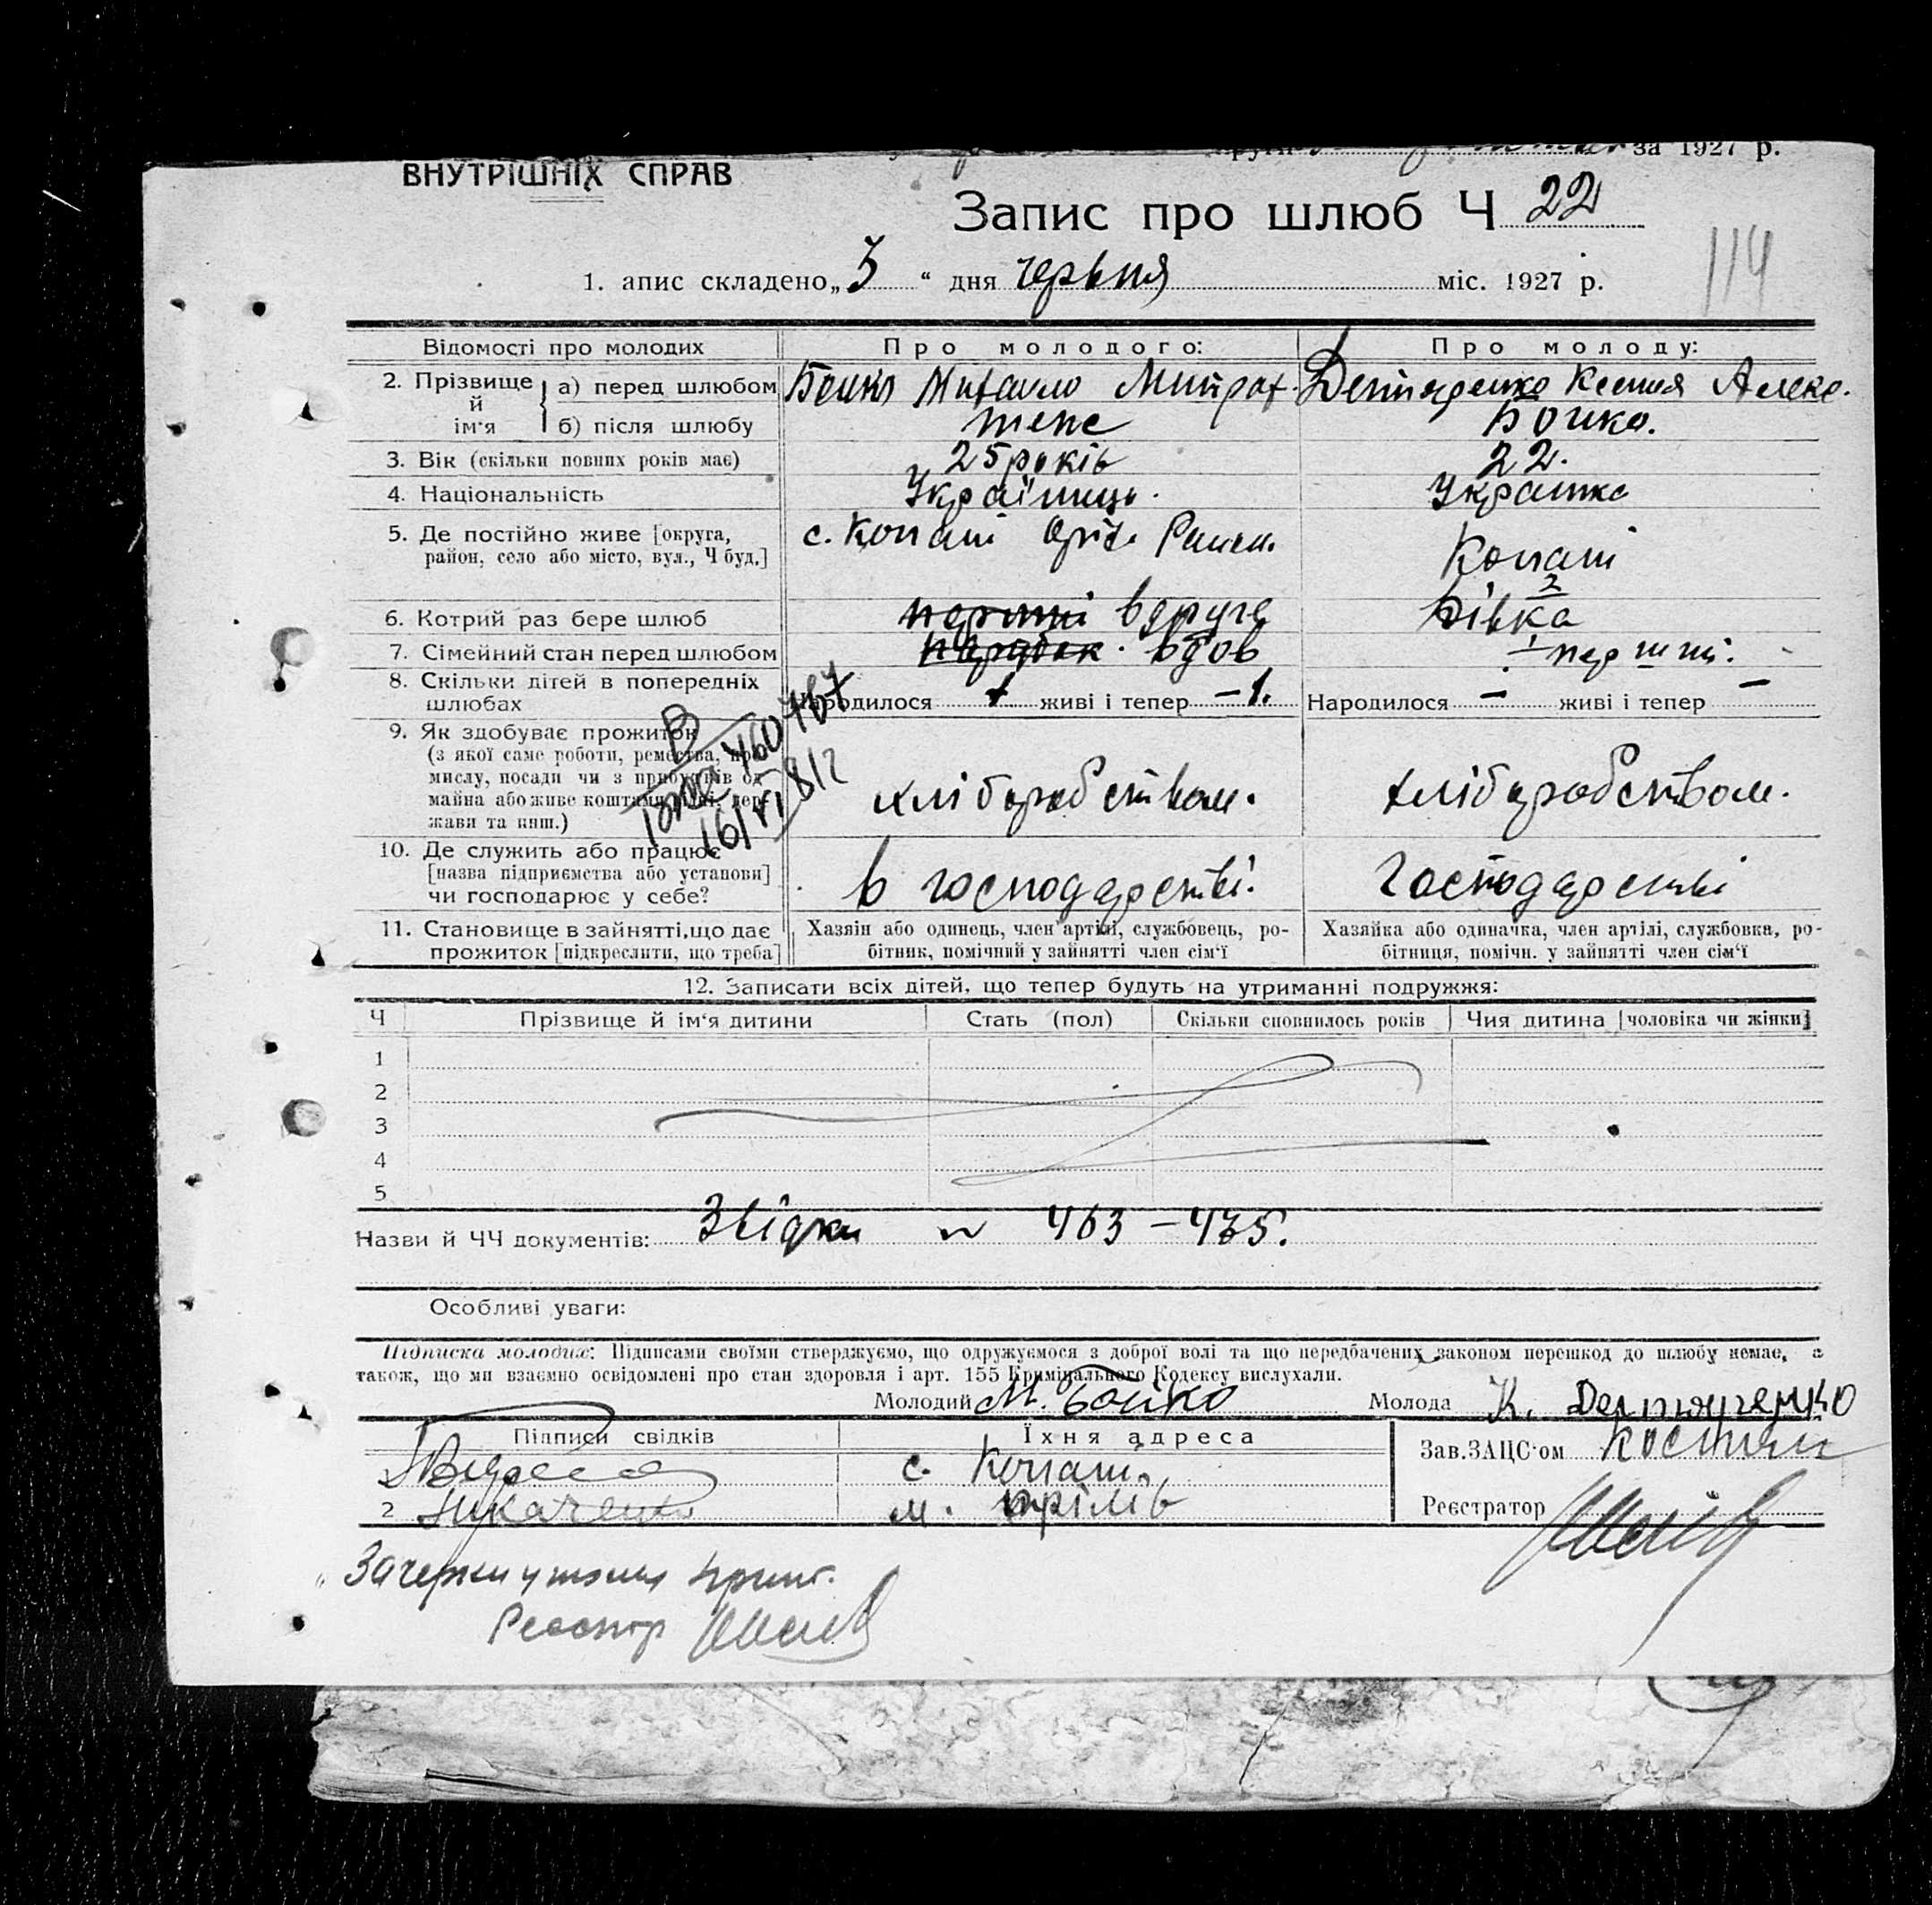 за 1927 р.
ВНУТРІШНІХ СПРАВ
Запис про шлюб Ч 22
114
1. апис складено „3“ дня червня міс. 1927 р.
Відомості про молодих Про молодого: Про молоду:
2. Прізвище й ім'я а) перед шлюбом Бойко Михайло Митроф. Дегтяренко Ксения Алекс.
б) після шлюбу теж Бойко.
3. Вік (скільки повних років має) 25 років 22.
4. Національність Українець. Українка
5. Де постійно живе [округа, с. Копані Оріх. Район.
район, село або місто, вул., Ч буд.] Копані
6. Котрий раз бере шлюб перший вдруге дівка 2
7. Сімейний стан перед шлюбом парубок. вдов 1 перший.
8. Скільки дітей в попередніх
шлюбах Народилося 1 живі і тепер – 1. Народилося – живі і тепер –
9. Як здобуває прожиток
(з якої саме роботи, ремества, про-
мислу, посади чи з прибутків од
майна або живе коштами рідні, дер-
жави та инш.) хліборобством. хліборобством.
10. Де служить або працює
[назва підприємства або установи]
чи господарює у себе? в господарстві. Господарстві
11. Становище в зайнятті, що дає Хазяін або одинець, член артілі, службовець, ро- Хазяйка або одиначка, член артілі, службовка, ро-
прожиток [підкреслити, що треба] бітник, помічний у зайнятті член сім'ї бітниця, помічн. у зайнятті член сім'ї
12. Записати всіх дітей, що тепер будуть на утриманні подружжя:
Ч Прізвище й ім'я дитини Стать (пол) Скільки сповнилось років Чия дитина [чоловіка чи жінки]
1
2
3
4
5
Назви й ЧЧ документів: Звідки 463 – 475.
Особливі уваги:
Підписка молодих: Підписами своїми стверджуємо, що одружуємося з доброї волі та що передбачених законом перешкод до шлюбу немає, а
також, що ми взаємно освідомлені про стан здоровля і арт. 155 Кримінального Кодексу вислухали.
Молодий М. Бойко Молода К. Дегтяренко
Підписи свідків Їхня адреса Зав. ЗАЦС'ом
1 с. Копані
2 м. Оріхів Реєстратор